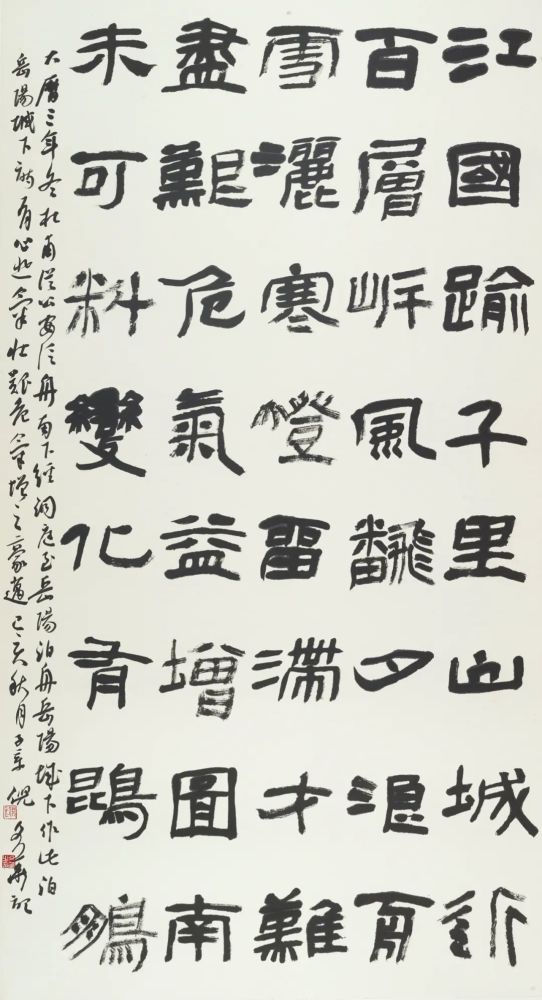 江國踰千里山城近
百層岸風飜夕浪舟
雪灑寒燈留滯才難
盡艱危氣益增圖南
未可料變化有鵾鵬
大曆三年冬杜甫從公安泛舟南下經洞庭至岳陽泊舟岳陽城下作此泊
岳陽城下詩有心悲氣壯艱危氣增之豪邁己亥秋月倪記